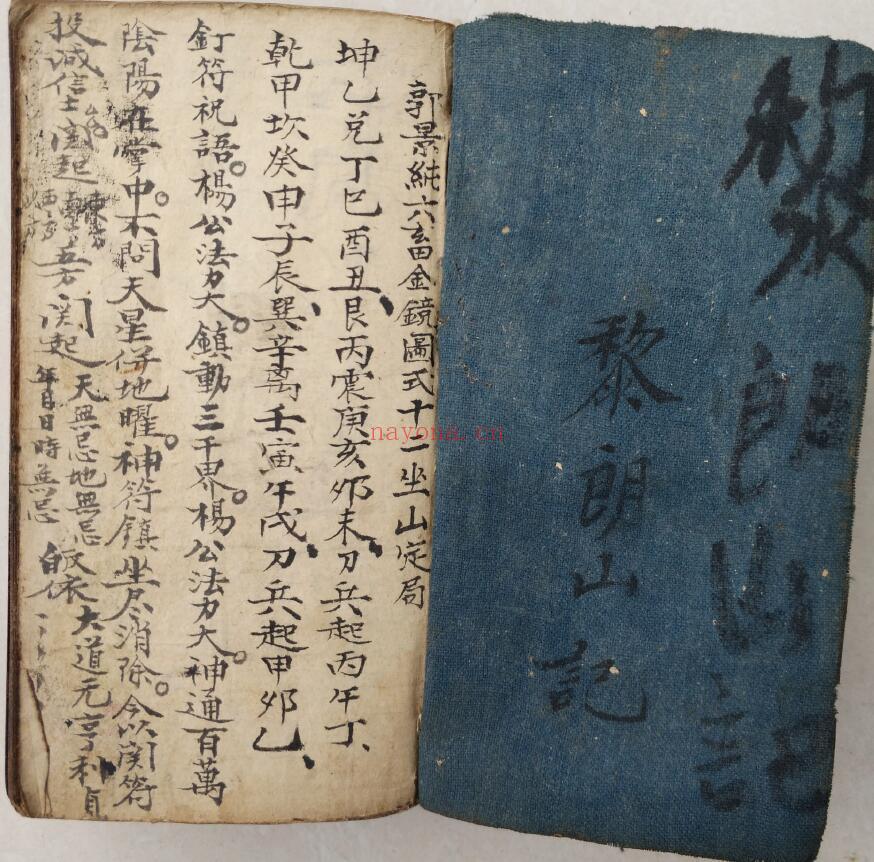 黎朗山記
黎朗山記
郭景純六畜金鏡圖式十一坐山定局
坤乙兌丁巳酉丑、艮丙震庚亥夘未、刀兵起丙午丁、
乾甲坎癸申子辰、巽辛萬壬寅午戌、刀兵起甲夘乙、
釘符祝語。楊公法力大。鎮動三千界。楊公法力大。神通百萬
陰陽在掌中。不問天星併地曜。神符鎮坐尽消除。今以関符
投誠信士 関起 東方 五方関起 年月日時無忌 天無忌地無忌 皈依大道元亨利貞
nayona.cn